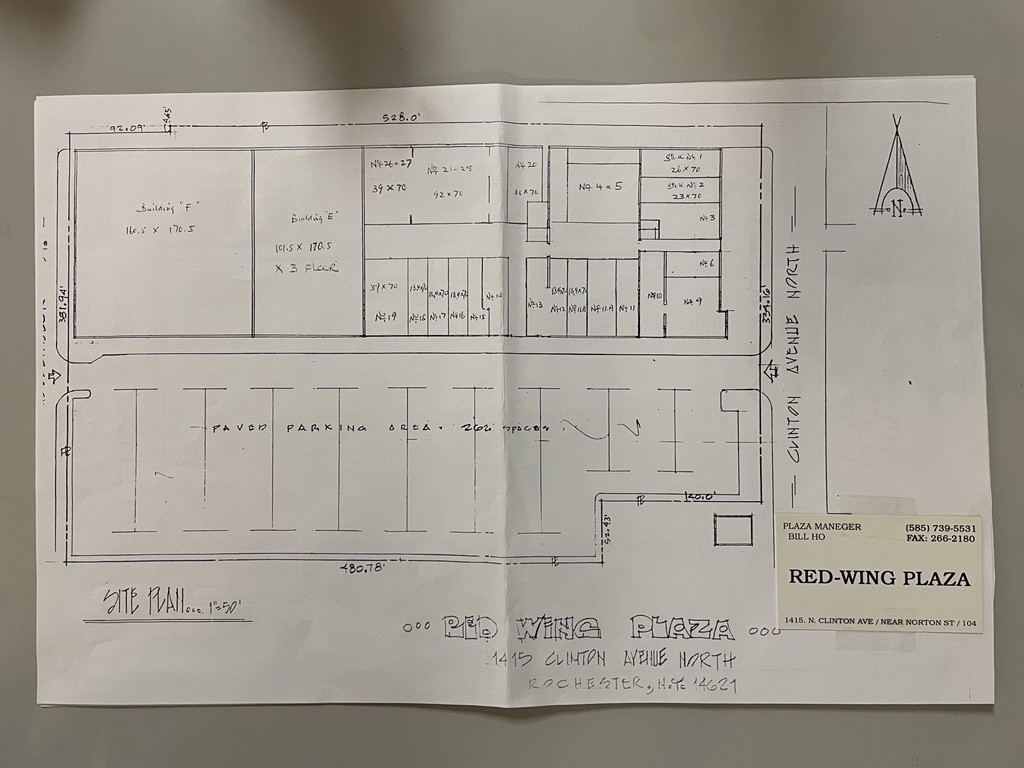 528.0'
92.09'
4.45'
Building "F"
160.5 x 170.5
Building "E"
101.5 x 170.5
x 3 FLOOR
No. 26-27
39 x 70
No. 21-25
92 x 70
No. 20
No. 4 & 5
26 x 70
23 x 70
No. 3
No. 6
No. 9
39 x 70
No. 19
No. 18
No. 17
No. 16
No. 15
No. 14
No. 13
No. 12
No. 11
No. 10
334.16'
CLINTON AVENUE NORTH
N
PAVED PARKING AREA. 262 SPACES.
140.0'
52.43'
480.78'
SITE PLAN... 1"=50'
RED WING PLAZA
1415 CLINTON AVENUE NORTH
ROCHESTER, N.Y. 14621
PLAZA MANEGER (585) 739-5531
BILL HO FAX: 266-2180
RED-WING PLAZA
1415. N. CLINTON AVE / NEAR NORTON ST / 104